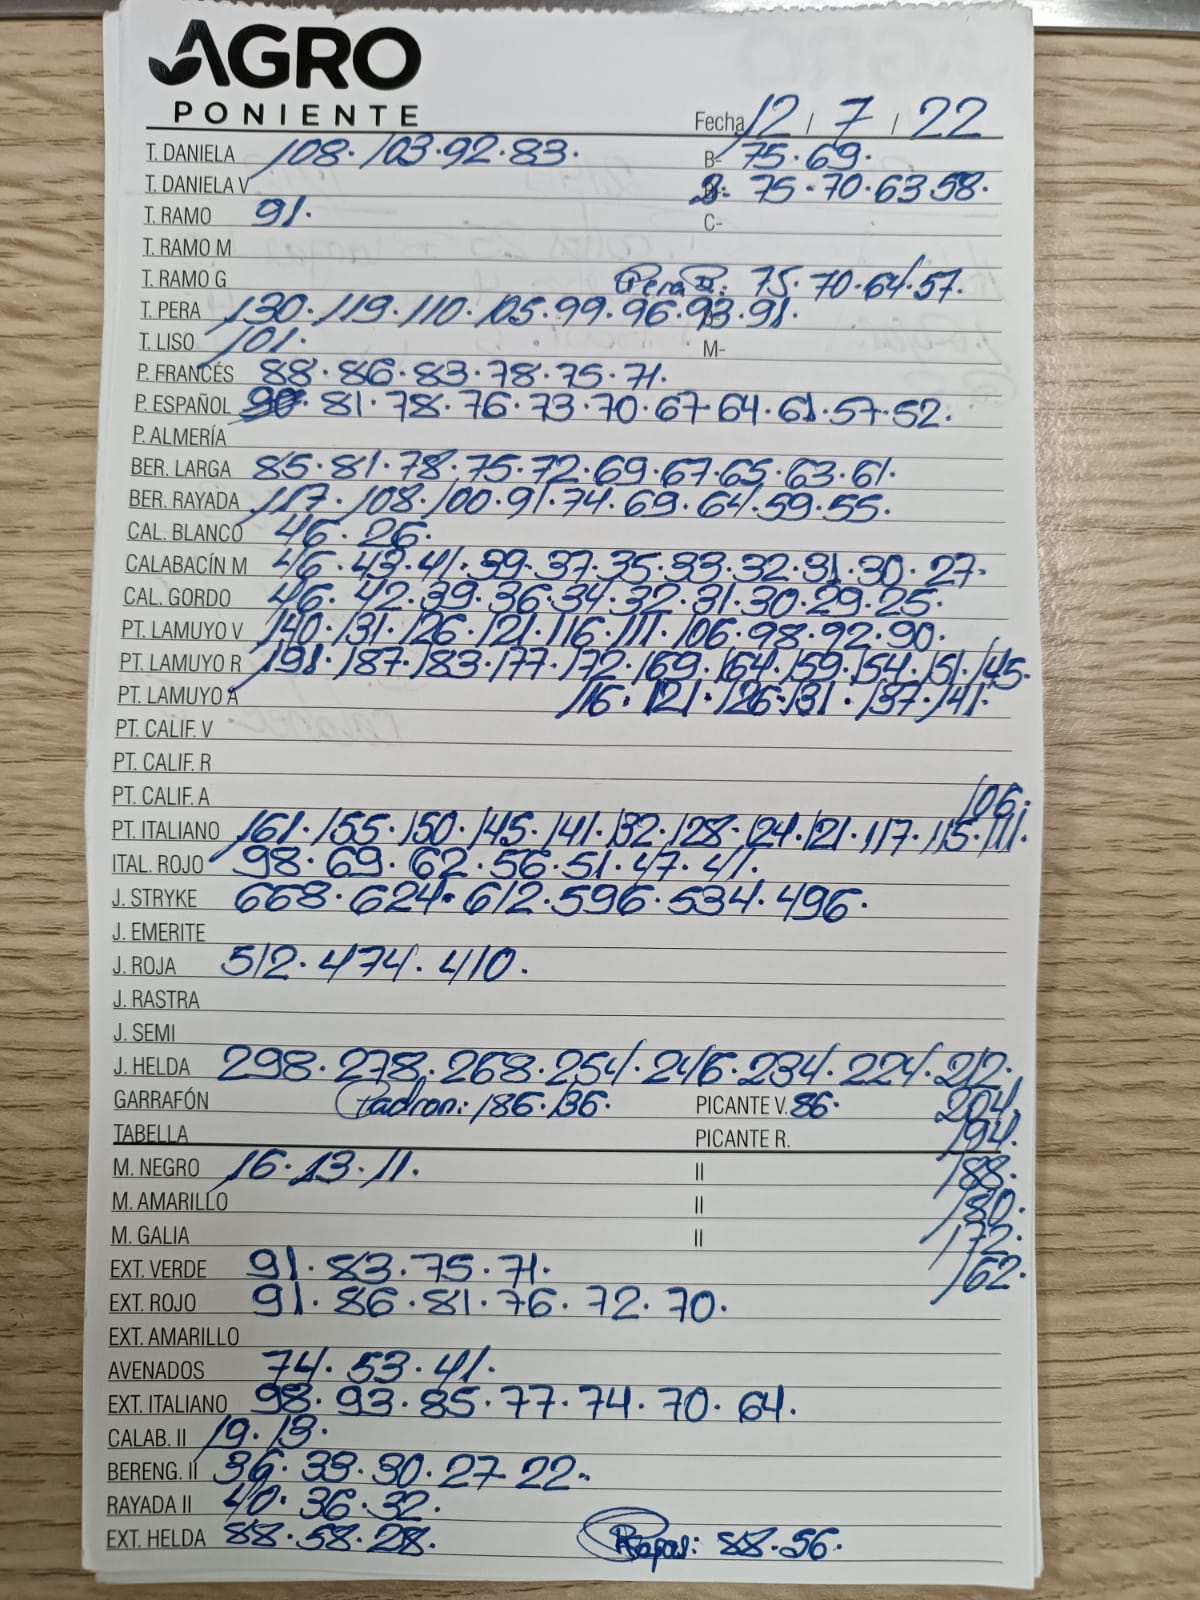 AGRO
PONIENTE
Fecha 12 / 7 / 22
T. DANIELA 108. 103. 92. 83. B- 75. 69.
T. DANIELA V 2: 75. 70. 63 58.
T. RAMO 91. C-
T. RAMO M
T. RAMO G Pera II: 75. 70. 64. 57.
T. PERA 130. 119. 110. 105. 99. 96. 93. 91.
T. LISO 101. M-
P. FRANCÉS 88. 86. 83. 78. 75. 71.
P. ESPAÑOL 90. 81. 78. 76. 73. 70. 67. 64. 61. 57. 52.
P. ALMERÍA
BER. LARGA 85. 81. 78. 75. 72. 69. 67. 65. 63. 61.
BER. RAYADA 117. 108. 100. 91. 74. 69. 64. 59. 55.
CAL. BLANCO 46. 26.
CALABACÍN M 46. 43. 41. 39. 37. 35. 33. 32. 31. 30. 27.
CAL. GORDO 46. 42. 39. 36. 34. 32. 31. 30. 29. 25.
PT. LAMUYO V 140. 131. 126. 121. 116. 111. 106. 98. 92. 90.
PT. LAMUYO R 191. 187. 183. 177. 172. 169. 164. 159. 154. 151. 145.
PT. LAMUYO A 116. 121. 126. 131. 137. 141.
PT. CALIF. V
PT. CALIF. R
PT. CALIF. A 106.
PT. ITALIANO 161. 155. 150. 145. 141. 132. 128. 124. 121. 117. 115. 111.
ITAL. ROJO 98. 69. 62. 56. 51. 47. 41.
J. STRYKE 668. 624. 612. 596. 534. 496.
J. EMERITE
J. ROJA 512. 474. 410.
J. RASTRA
J. SEMI
J. HELDA 298. 278. 268. 254. 246. 234. 224. 212.
GARRAFÓN Padron: 186. 136. PICANTE V. 86. 204.
TABELLA PICANTE R. 194.
M. NEGRO 16. 13. 11. II 188.
M. AMARILLO II 180.
M. GALIA II 172.
EXT. VERDE 91. 83. 75. 71. 162.
EXT. ROJO 91. 86. 81. 76. 72. 70.
EXT. AMARILLO
AVENADOS 74. 53. 41.
EXT. ITALIANO 98. 93. 85. 77. 74. 70. 64.
CALAB. II 19. 13.
BERENG. II 36. 33. 30. 27 22.
RAYADA II 40. 36. 32.
EXT. HELDA 88. 58. 28. Rojas: 88. 56.